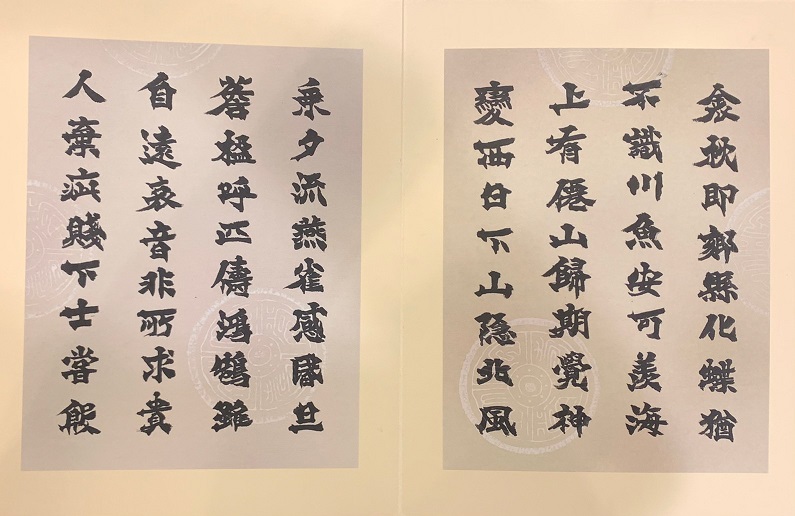 衾枕即鄉縣化蝶猶
不識川魚安可羨海
上有僊山歸期覺神
變西日下山隐北風
乘夕流燕雀感昏旦
簷楹呼匹儔鴻鵠雖
自遠哀音非所求貴
人棄疵賤下士嘗殷